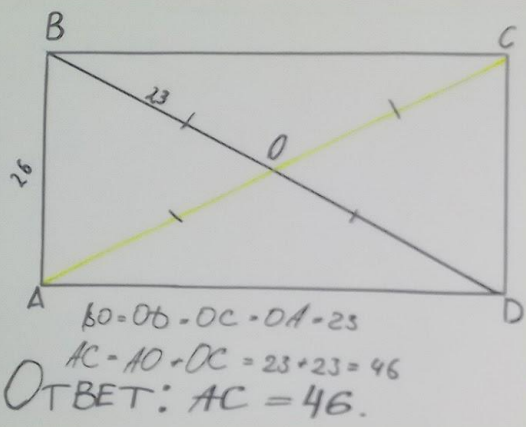 B
C
23
O
26
A
D
BO = OD = OC = OA = 23
AC = AO + OC = 23 + 23 = 46
ОТВЕТ: AC = 46.